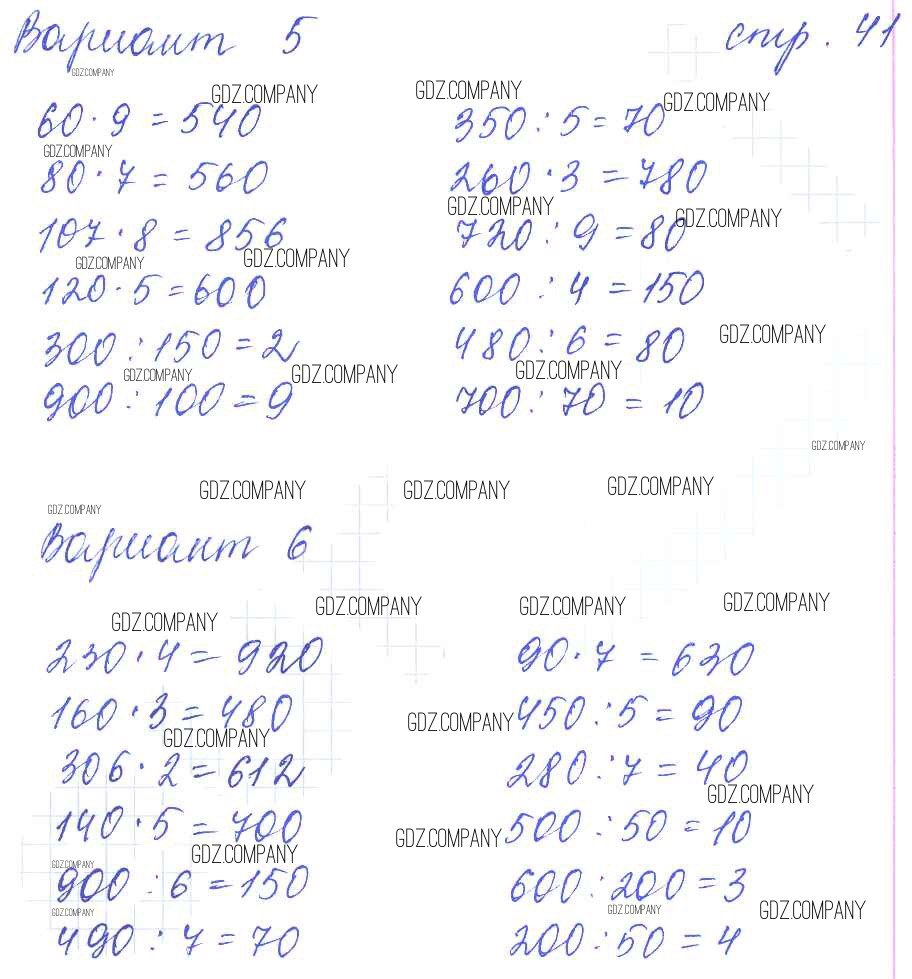 Вариант 5 стр. 41
GDZ.COMPANY
GDZ.COMPANY GDZ.COMPANY GDZ.COMPANY
60 · 9 = 540 350 : 5 = 70
GDZ.COMPANY
80 · 7 = 560 260 · 3 = 780
GDZ.COMPANY GDZ.COMPANY
107 · 8 = 856 720 : 9 = 80
GDZ.COMPANY GDZ.COMPANY
120 · 5 = 600 600 : 4 = 150
GDZ.COMPANY
300 : 150 = 2 480 : 6 = 80
GDZ.COMPANY GDZ.COMPANY GDZ.COMPANY
900 : 100 = 9 700 : 70 = 10
GDZ.COMPANY
GDZ.COMPANY GDZ.COMPANY GDZ.COMPANY
GDZ.COMPANY
Вариант 6
GDZ.COMPANY GDZ.COMPANY GDZ.COMPANY GDZ.COMPANY
230 · 4 = 920 90 · 7 = 630
160 · 3 = 480 GDZ.COMPANY 450 : 5 = 90
GDZ.COMPANY
306 · 2 = 612 280 : 7 = 40
GDZ.COMPANY
140 · 5 = 700 GDZ.COMPANY 500 : 50 = 10
GDZ.COMPANY GDZ.COMPANY
900 : 6 = 150 600 : 200 = 3
GDZ.COMPANY GDZ.COMPANY GDZ.COMPANY
490 : 7 = 70 200 : 50 = 4